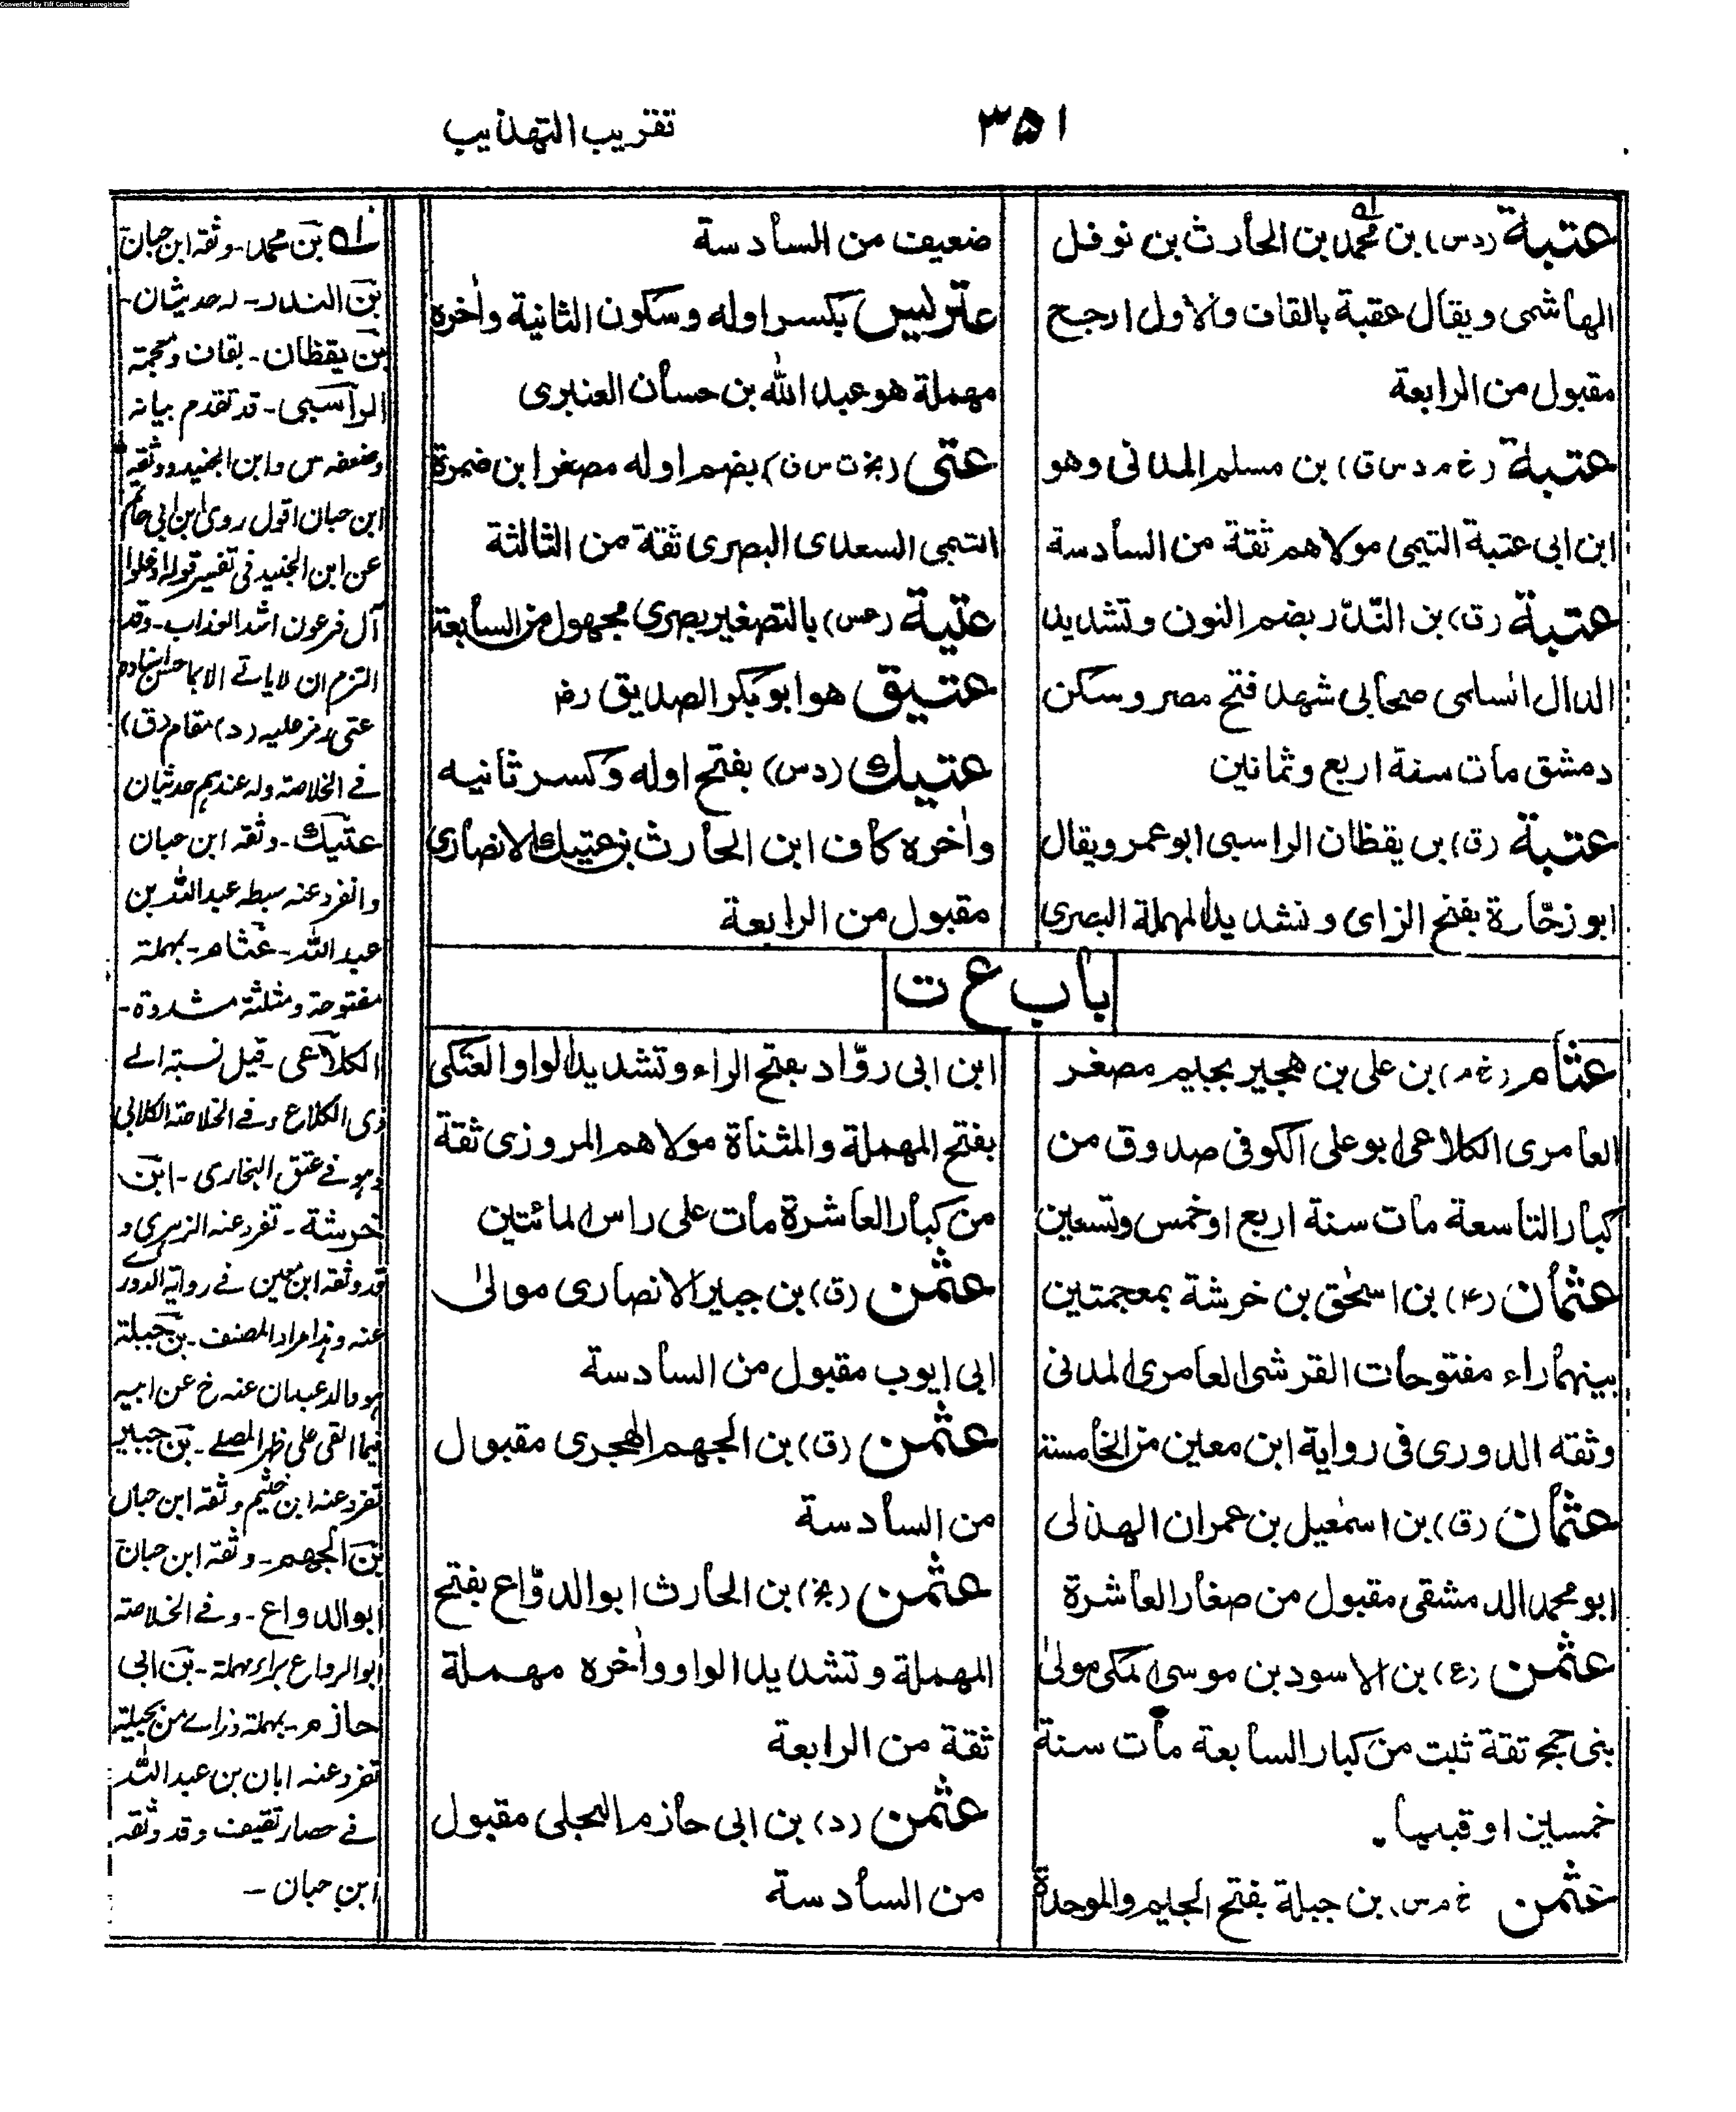 Converted by Tiff Combine - unregistered
٣٥١
تقریب التهذیب
عتبة (د س) بن محمد بن الحارث بن نوفل
الهاشمی ویقال عقبة بالقاف والاول ارجح
مقبول من الرابعة
عتبة (خ م د س ق) بن مسلم المدنی وهو
ابن ابی عتبة التیمی مولاهم ثقة من السادسة
عتبة (ق) بن النّدّر بضم النون وتشدید
الدال السلمی صحابی شهد فتح مصر وسکن
دمشق مات سنة اربع وثمانین
عتبة (ق) بن یقظان الراسبی ابو عمر ویقال
ابو زحّارة بفتح الزای وتشدید المهملة البصری
ضعیف من السادسة
عتریس بکسر اوله وسکون الثانیة واٰخره
مهملة هو عبد الله بن حسان العنبری
عتی (بخ ت س ق) بضم اوله مصغر ابن ضمرة
التمی السعدی البصری ثقة من الثالثة
عتیبة (عس) بالتصغیر بصری مجهول من السابعة
عتیق هو ابو بکر الصدیق رض
عتیك (د س) بفتح اوله وکسر ثانیه
واٰخره کاف ابن الحارث بن عتیك الانصاری
مقبول من الرابعة
باب ع ث
عثام (خ م) بن علی بن هجیر بجیم مصغر
العامری الکلاعی ابو علی الکوفی صدوق من
کبار التاسعة مات سنة اربع او خمس وتسعین
عثمان (۴) بن اسحٰق بن خرشة بمعجمتین
بینهما راء مفتوحات القرشی العامری المدنی
وثقه الدوری فی روایة ابن معین من الخامسة
عثمان (ق) بن اسمٰعیل بن عمران الهذلی
ابو محمد الدمشقی مقبول من صغار العاشرة
عثمن (ع) بن الاسود بن موسی المکی مولیٰ
بنی جمح ثقة ثبت من کبار السابعة مات سنة
خمسین او قبلها
عثمن خ م س، بن جبلة بفتح الجیم والموحدة
ابن ابی روّاد بفتح الراء وتشدید الواو العتکی
بفتح المهملة والمثناة مولاهم المروزی ثقة
من کبار العاشرة مات علی راس المائتین
عثمن (ق) بن جبیر الانصاری مولیٰ
ابی ایوب مقبول من السادسة
عثمن (ق) بن الجهم الهجری مقبول
من السادسة
عثمن (بخ) بن الحارث ابو الدوّاع بفتح
المهملة وتشدید الواو واٰخره مهملة
ثقة من الرابعة
عثمن (د) بن ابی حازم البجلی مقبول
من السادسة
بن محمد - وثقه ابن حبان
بن الندر - له حدیثان -
بن یقظان - بقاف ومعجمة
الراسبی - قد تقدم بیانه
وضعفه س وابن الجنید ووثقه
ابن حبان اقول روی ابن ابی حاتم
عن ابن الجنید فی تفسیر قوله ادخلوا
آل فرعون اشد العذاب - وقد
التزم ان لا یاتے الا باحسن اسناده
عتی رمز علیه (د) مقام (ق)
فے الخلاصة وله عندهم حدیثان
عتیك - وثقه ابن حبان
وانفرد عنه سبطه عبد الله بن
عبد الله - عثام - بمهملة
مفتوحة ومثلثة مشددة -
الکلاعی - قیل نسبته الے
ذی الکلاع وفے الخلاصة الکلابی
وهو فے عتق البخاری - ابن
خرشة - تفرد عنه الزهری و
قد وثقه ابن معین فے روایة الدوری
عنه وهذا مراد المصنف - بن جبلة
هو والد عبدان عنه خ عن ابیه
فیما القی علی ظهر المصلے - بن جبیر
تفرد عنه ابن خثیم وثقه ابن حبان
بن الجهم - وثقه ابن حبان
ابو الدواع - وفے الخلاصة
ابو الرواع براء مهملة - بن ابی
حازم - بمهملة وزاے من بجیلة
تفرد عنه ابان بن عبد الله
فے حصار ثقیف وقد وثقه
ابن حبان -